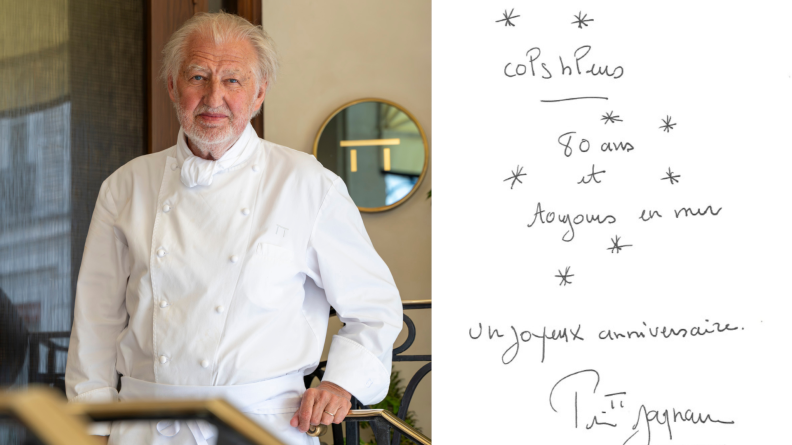 cols bleus
80 ans
et
toujours en mer
un joyeux anniversaire.
Pierre Gagnaire